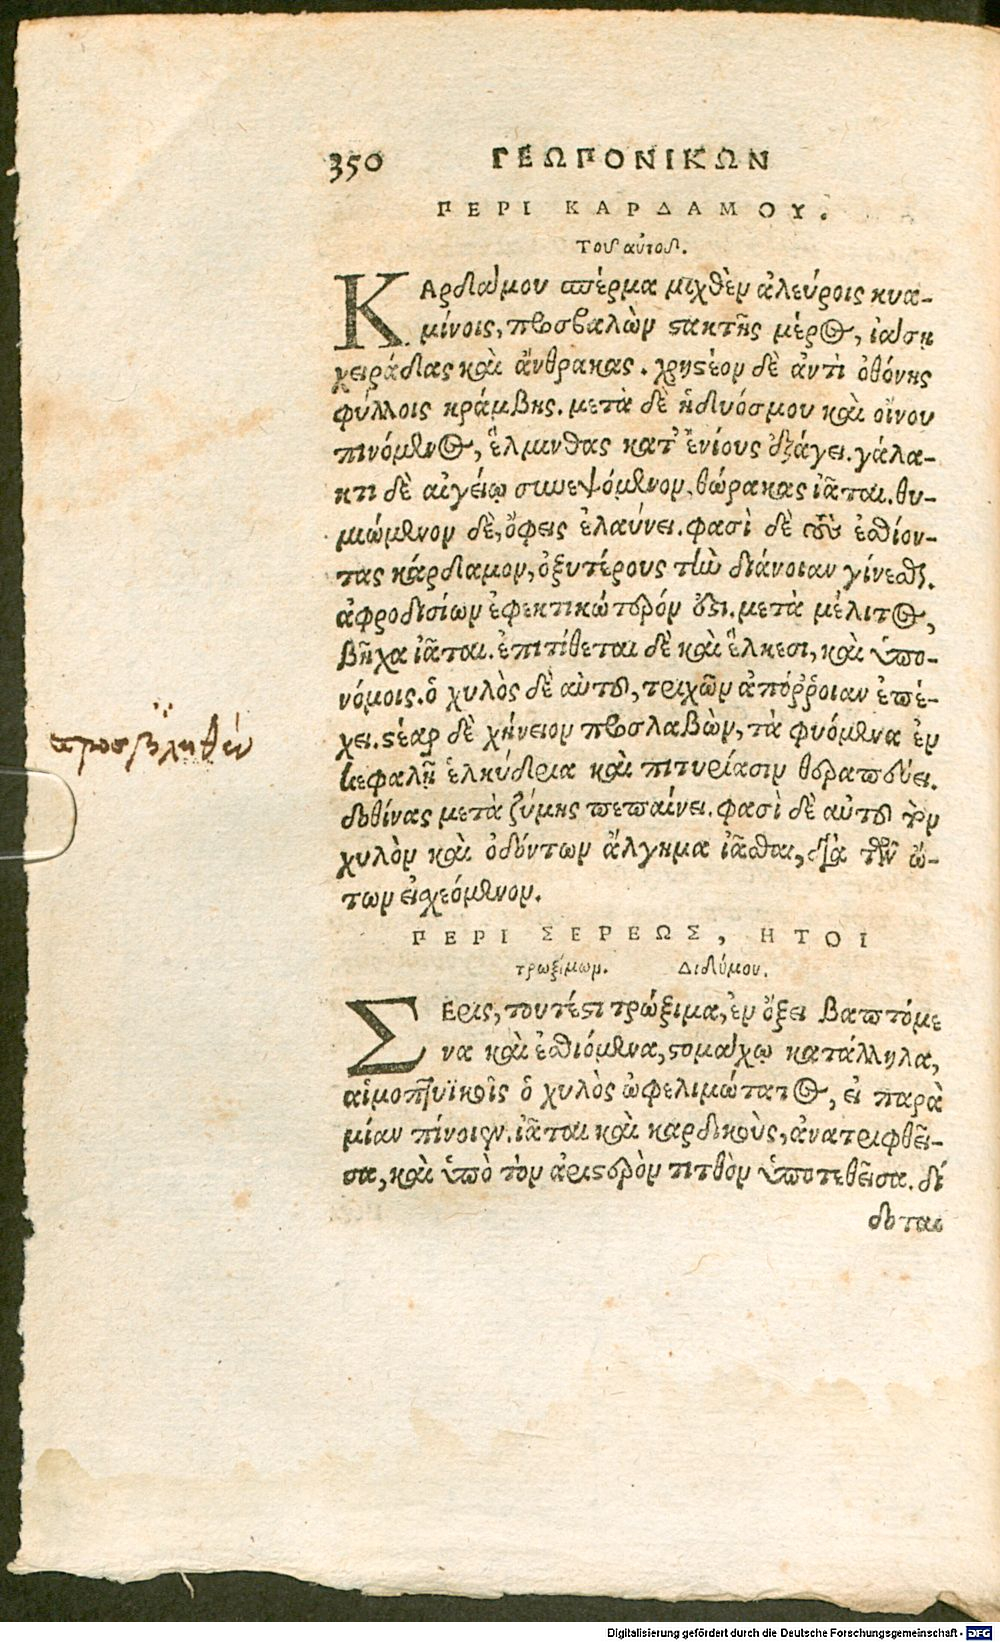 350 ΓΕΩΠΟΝΙΚΩΝ
ΠΕΡΙ ΚΑΡΔΑΜΟΥ.
Τοῦ αὐτοῦ.
ΚΑρδάμου σπέρμα μιχθὲν ἀλεύροις κυα-
μίνοις, προσβαλὼν στακτῆς μέρος, ἰάση
χειράδας καὶ ἄνθρακας. χρηστέον δὲ ἀντὶ ὀθόνης
φύλλοις κράμβης. μετὰ δὲ ἡδυόσμου καὶ οἴνου
πινόμενος, ἕλμινθας κατ᾽ ἐνίους ἐξάγει. γάλα-
κτι δὲ αἰγείῳ συνεψόμενον, θώρακας ἰᾶται. θυ-
μιώμενον δὲ, ὄφεις ἐλαύνει. φασὶ δὲ τοὺς ἐσθίον-
τας κάρδαμον, ὀξυτέρους τὴν διάνοιαν γίνεσθαι.
ἀφροδισίων ἐφεκτικώτερόν ἐστι. μετὰ μέλιτος,
βῆχα ἰᾶται. ἐπιτίθεται δὲ καὶ ἕλκεσι, καὶ ὑπο-
νόμοις. ὁ χυλὸς δὲ αὐτοῦ, τριχῶν ἀπόῤῥοιαν ἐπέ-
χει. στέαρ δὲ χήνειον προσλαβὼν, τὰ φυόμενα ἐν
προσβληθέν
κεφαλῇ ἑλκύδρια καὶ πιτυρίασιν θεραπεύει.
δοθίνας μετὰ ζύμης πεπαίνει. φασὶ δὲ αὐτοῦ τὸν
χυλὸν καὶ ὀδόντων ἄλγημα ἰᾶσθαι, διὰ τῶν ὤ-
των εἰχεόμενον.
ΠΕΡΙ ΣΕΡΕΩΣ, ΗΤΟΙ
τρωξίμων. Διδύμου.
ΣΕρις, τουτέστι τρώξιμα, ἐν ὄξει βαπτόμε
να καὶ ἐσθιόμενα, στομάχῳ κατάλληλα,
αἱμοπτυϊκοῖς ὁ χυλὸς ὠφελιμώτατος, εἰ παρὰ
μίαν πίνοιεν. ἰᾶται καὶ καρδικοὺς, ἀνατριφθεῖ-
σα, καὶ ὑπὸ τὸν ἀριστερὸν τιτθὸν ὑποτεθεῖσα. δί
δοται
Digitalisierung gefördert durch die Deutsche Forschungsgemeinschaft - DFG